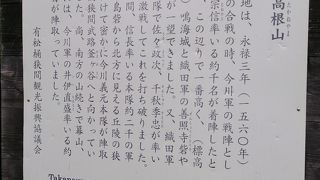 高根山
たかねやま
地は、永禄三年（一五六〇年）
の合戦の時、今川軍の戦陣とし
宗信率いる約千名が着陣したと
。この辺りで一番高く、（標高
）鳴海城と織田軍の善照寺砦や
が一望できました。又、織田軍
隊で佐々政次、千秋季忠が率い
激戦してこれを打ち破りました。
間、信長率いる本隊約二千の軍
島砦から北方に見える丘陵の狭
けて密かに今川義元本隊が陣取
狭間武路釜ヶ谷へと向かってい
。尚、南方の山続きで幕山、
は、今川軍の井伊直盛率いる約
が陣取っていました。
有松桶狭間観光振興協議会